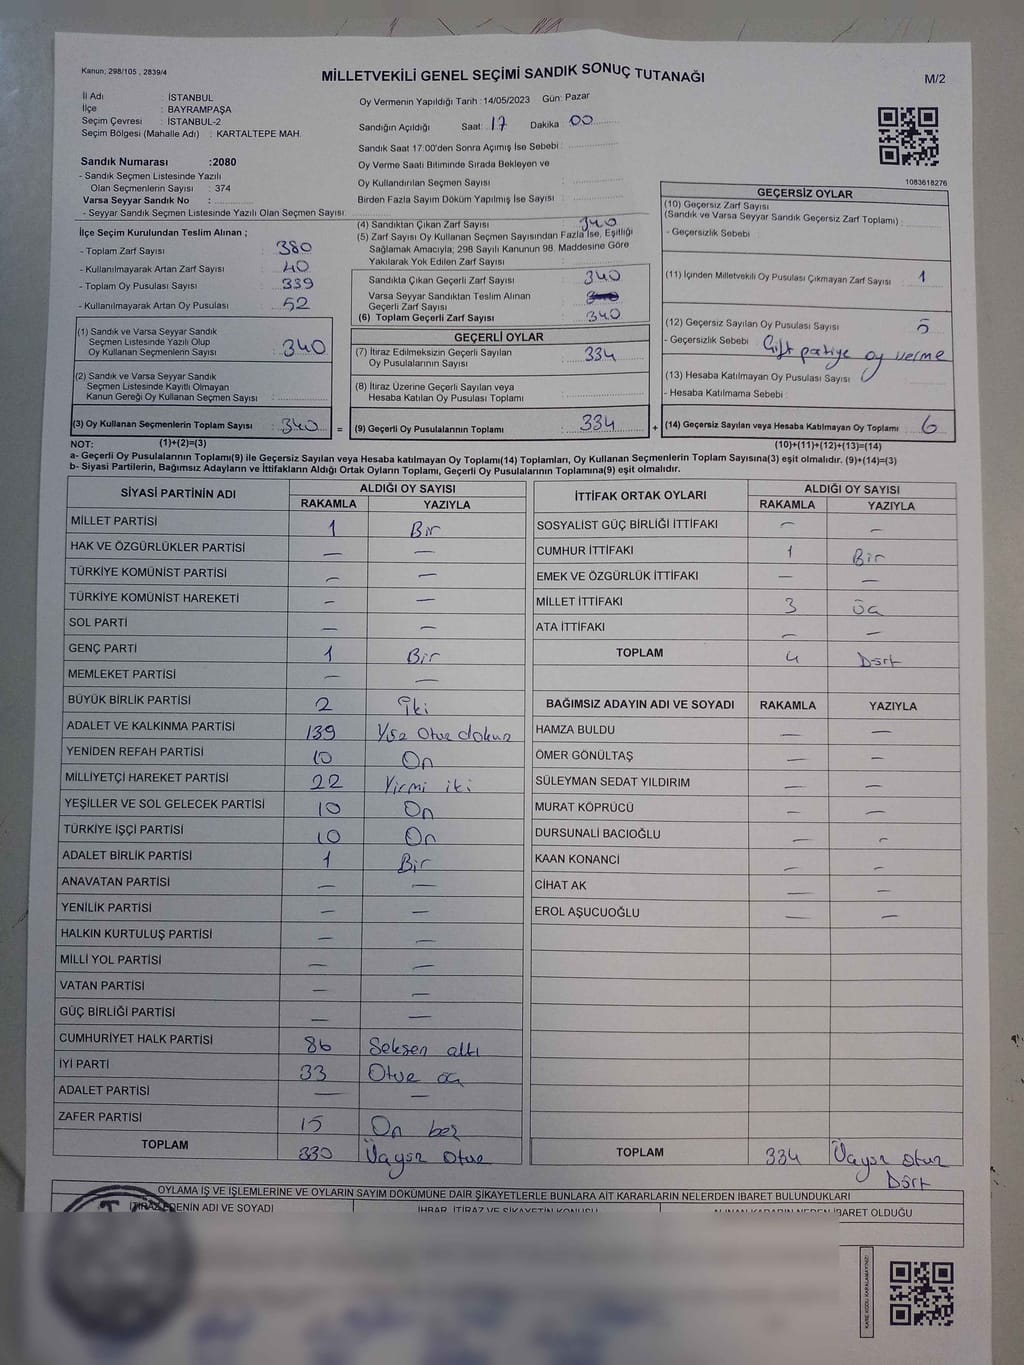 Kanun; 298/105 , 2839/4
MİLLETVEKİLİ GENEL SEÇİMİ SANDIK SONUÇ TUTANAĞI
M/2
İl Adı : İSTANBUL
İlçe : BAYRAMPAŞA
Seçim Çevresi : İSTANBUL-2
Seçim Bölgesi (Mahalle Adı) : KARTALTEPE MAH.
Sandık Numarası :2080
- Sandık Seçmen Listesinde Yazılı
Olan Seçmenlerin Sayısı : 374
Varsa Seyyar Sandık No :
- Seyyar Sandık Seçmen Listesinde Yazılı Olan Seçmen Sayısı:
İlçe Seçim Kurulundan Teslim Alınan ;
- Toplam Zarf Sayısı : 380
- Kullanılmayarak Artan Zarf Sayısı : 40
- Toplam Oy Pusulası Sayısı : 339
- Kullanılmayarak Artan Oy Pusulası : 52
(1) Sandık ve Varsa Seyyar Sandık
Seçmen Listesinde Yazılı Olup
Oy Kullanan Seçmenlerin Sayısı : 340
(2) Sandık ve Varsa Seyyar Sandık
Seçmen Listesinde Kayıtlı Olmayan
Kanun Gereği Oy Kullanan Seçmen Sayısı :
(3) Oy Kullanan Seçmenlerin Toplam Sayısı : 340 =
Oy Vermenin Yapıldığı Tarih :14/05/2023 Gün: Pazar
Sandığın Açıldığı Saat: 17 Dakika 00
Sandık Saat 17:00'den Sonra Açımış İse Sebebi :
Oy Verme Saati Bitiminde Sırada Bekleyen ve
Oy Kullandırılan Seçmen Sayısı :
Birden Fazla Sayım Döküm Yapılmış İse Sayısı :
(4) Sandıktan Çıkan Zarf Sayısı : 340
(5) Zarf Sayısı Oy Kullanan Seçmen Sayısından Fazla İse, Eşitliği
Sağlamak Amacıyla; 298 Sayılı Kanunun 98. Maddesine Göre
Yakılarak Yok Edilen Zarf Sayısı :
Sandıkta Çıkan Geçerli Zarf Sayısı : 340
Varsa Seyyar Sandıktan Teslim Alınan
Geçerli Zarf Sayısı
(6) Toplam Geçerli Zarf Sayısı : 340
GEÇERLİ OYLAR
(7) İtiraz Edilmeksizin Geçerli Sayılan
Oy Pusulalarının Sayısı : 334
(8) İtiraz Üzerine Geçerli Sayılan veya
Hesaba Katılan Oy Pusulası Toplamı :
(9) Geçerli Oy Pusulalarının Toplamı : 334 +
1083618276
GEÇERSİZ OYLAR
(10) Geçersiz Zarf Sayısı
(Sandık ve Varsa Seyyar Sandık Geçersiz Zarf Toplamı) :
- Geçersizlik Sebebi :
(11) İçinden Milletvekili Oy Pusulası Çıkmayan Zarf Sayısı : 1
(12) Geçersiz Sayılan Oy Pusulası Sayısı : 5
- Geçersizlik Sebebi : Çift partiye oy verme
(13) Hesaba Katılmayan Oy Pusulası Sayısı :
- Hesaba Katılmama Sebebi :
(14) Geçersiz Sayılan veya Hesaba Katılmayan Oy Toplamı : 6
NOT: (1)+(2)=(3) (10)+(11)+(12)+(13)=(14)
a- Geçerli Oy Pusulalarının Toplamı(9) ile Geçersiz Sayılan veya Hesaba katılmayan Oy Toplamı(14) Toplamları, Oy Kullanan Seçmenlerin Toplam Sayısına(3) eşit olmalıdır. (9)+(14)=(3)
b- Siyasi Partilerin, Bağımsız Adayların ve İttifakların Aldığı Ortak Oyların Toplamı, Geçerli Oy Pusulalarının Toplamına(9) eşit olmalıdır.
SİYASİ PARTİNİN ADI ALDIĞI OY SAYISI
RAKAMLA YAZIYLA
MİLLET PARTİSİ 1 Bir
HAK VE ÖZGÜRLÜKLER PARTİSİ — —
TÜRKİYE KOMÜNİST PARTİSİ — —
TÜRKİYE KOMÜNİST HAREKETİ — —
SOL PARTİ — —
GENÇ PARTİ 1 Bir
MEMLEKET PARTİSİ — —
BÜYÜK BİRLİK PARTİSİ 2 İki
ADALET VE KALKINMA PARTİSİ 139 Yüz Otuz dokuz
YENİDEN REFAH PARTİSİ 10 On
MİLLİYETÇİ HAREKET PARTİSİ 22 Yirmi iki
YEŞİLLER VE SOL GELECEK PARTİSİ 10 On
TÜRKİYE İŞÇİ PARTİSİ 10 On
ADALET BİRLİK PARTİSİ 1 Bir
ANAVATAN PARTİSİ — —
YENİLİK PARTİSİ — —
HALKIN KURTULUŞ PARTİSİ — —
MİLLİ YOL PARTİSİ — —
VATAN PARTİSİ — —
GÜÇ BİRLİĞİ PARTİSİ — —
CUMHURİYET HALK PARTİSİ 86 Seksen altı
İYİ PARTİ 33 Otuz üç
ADALET PARTİSİ — —
ZAFER PARTİSİ 15 On beş
TOPLAM 330 Üçyüz Otuz
İTTİFAK ORTAK OYLARI ALDIĞI OY SAYISI
RAKAMLA YAZIYLA
SOSYALİST GÜÇ BİRLİĞİ İTTİFAKI — —
CUMHUR İTTİFAKI 1 Bir
EMEK VE ÖZGÜRLÜK İTTİFAKI — —
MİLLET İTTİFAKI 3 Üç
ATA İTTİFAKI — —
TOPLAM 4 Dört
BAĞIMSIZ ADAYIN ADI VE SOYADI RAKAMLA YAZIYLA
HAMZA BULDU — —
ÖMER GÖNÜLTAŞ — —
SÜLEYMAN SEDAT YILDIRIM — —
MURAT KÖPRÜCÜ — —
DURSUNALİ BACIOĞLU — —
KAAN KONANCİ — —
CİHAT AK — —
EROL AŞUCUOĞLU — —
TOPLAM 334 Üçyüz otuz
Dört
OYLAMA İŞ VE İŞLEMLERİNE VE OYLARIN SAYIM DÖKÜMÜNE DAİR ŞİKAYETLERLE BUNLARA AİT KARARLARIN NELERDEN İBARET BULUNDUKLARI
İTİRAZ EDENİN ADI VE SOYADI İHBAR, İTİRAZ VE ŞİKAYETİN KONUSU ALINAN KARARIN NEDEN İBARET OLDUĞU
KARE KODU KARALAMAYINIZ!